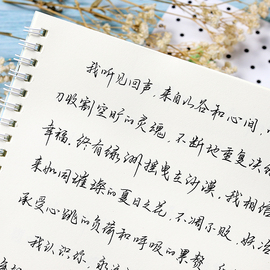 我听见回声，来自山谷和心间，
刀收割空旷的灵魂，不断地重复决
幸福，终有绿洲摇曳在沙漠，我相信
来如同璀璨的夏日之花，不凋不败，妖冶
承受心跳的负荷和呼吸的累赘，
我认识你，永